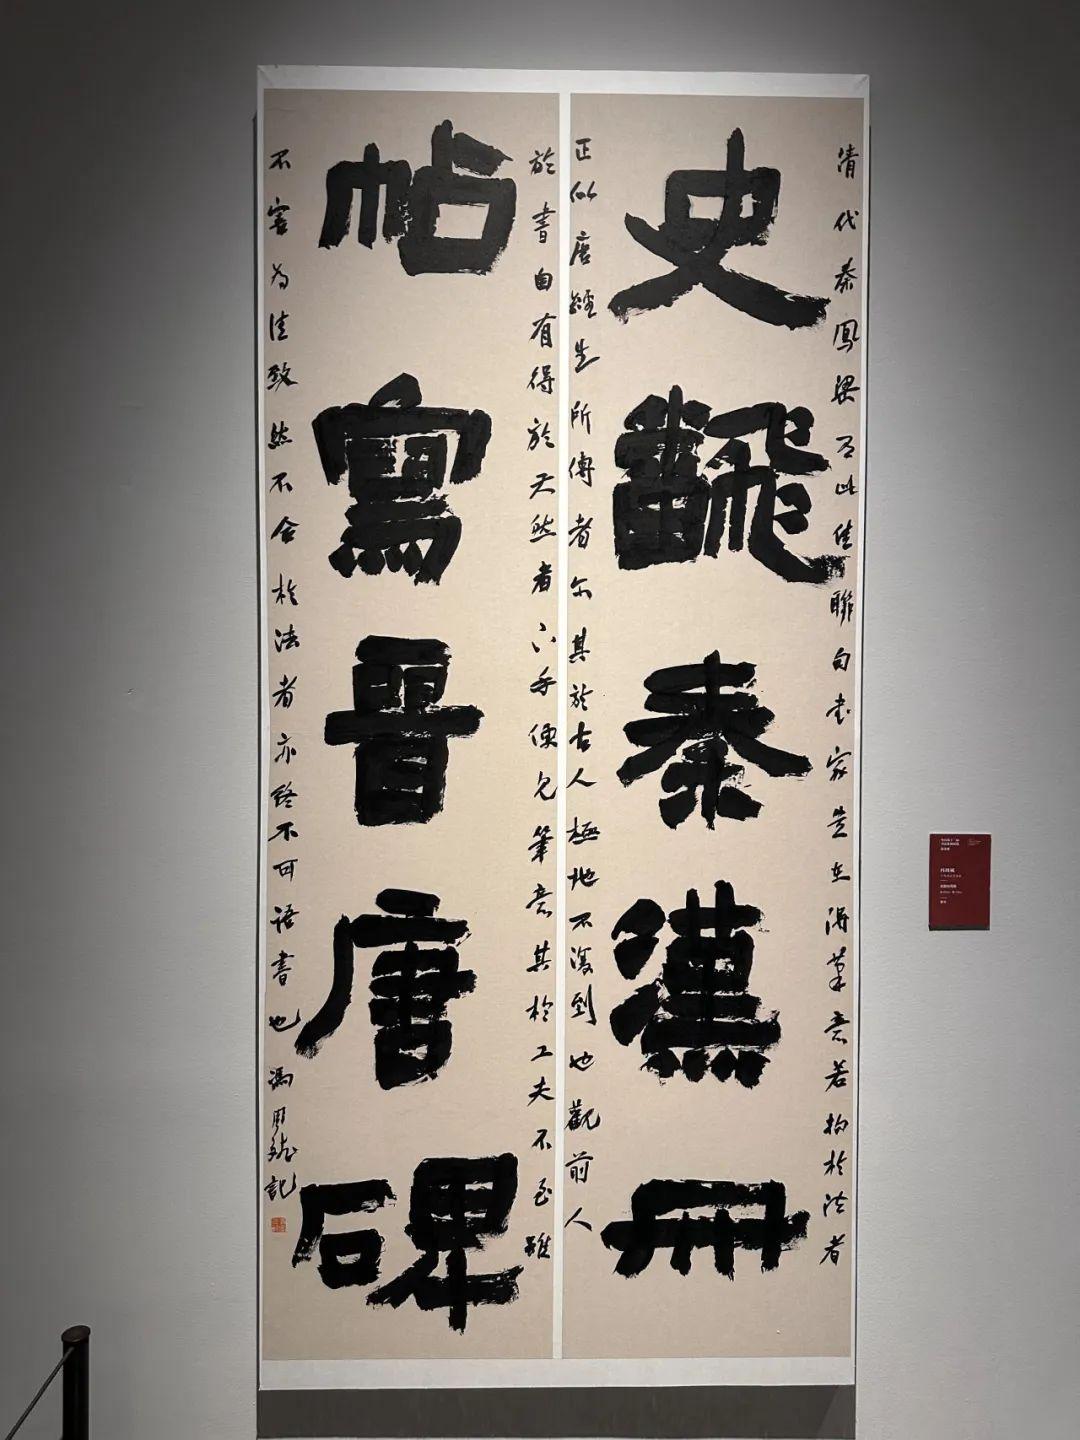 清代秦鳳梁有此佳聯句書家豈在得筆意若拘於法者
史飜秦漢冊
正似唐經生所傳者尔其於古人極地不復到也觀前人
於書自有得於天然者下手便見筆意其於工夫不至雖
帖寫晉唐碑
不害為佳致然不合於法者亦終不可語書也 馮 記